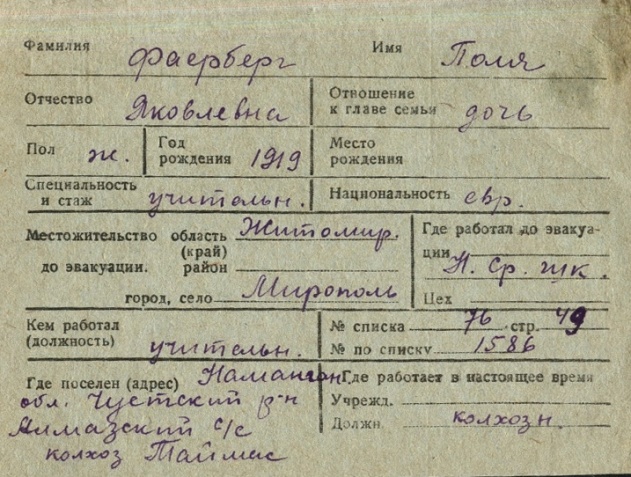 Фамилия Фаерберг Имя Поля
Отчество Яковлевна Отношение к главе семьи дочь
Пол ж. Год рождения 1919 Место рождения
Специальность и стаж учительн. Национальность евр.
Местожительство область Житомир. Где работал до эвакуа-
(край) ции Н. Ср. шк.
до эвакуации. район
город, село Мирополь Цех
Кем работал № списка 76 стр. 49
(должность) учительн. № по списку 1586
Где поселен (адрес) Наманган Где работает в настоящее время
обл. Чустский р-н Учрежд.
Алмазский с/с Должн. колхозн.
колхоз Таймас